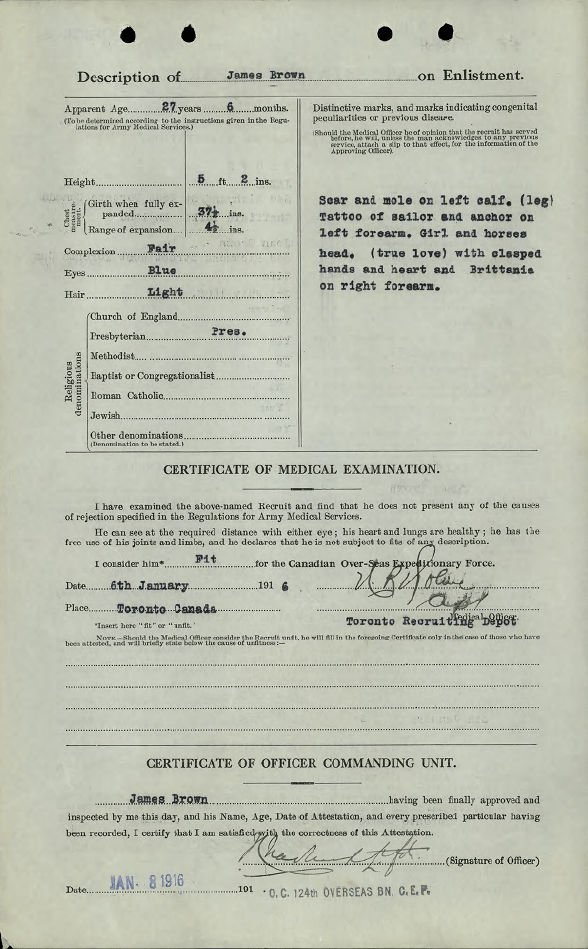 Description of James Brown on Enlistment.
Apparent Age 27 years 6 months.
(To be determined according to the instructions given in the Regu-
lations for Army Medical Services.)
Height 5 ft 2 ins.
Chest measure-ment.
Girth when fully ex-
panded 37½ ins.
Range of expansion 4½ ins.
Complexion Fair
Eyes Blue
Hair Light
Religious denominations
Church of England
Presbyterian Pres.
Methodist
Baptist or Congregationalist
Roman Catholic
Jewish
Other denominations
(Denomination to be stated.)
Distinctive marks, and marks indicating congenital
peculiarities or previous disease.
(Should the Medical Officer be of opinion that the recruit has served
before, he will, unless the man acknowledges to any previous
service, attach a slip to that effect, for the information of the
Approving Officer).
Scar and mole on left calf. (leg)
Tattoo of sailor and anchor on
left forearm. Girl and horses
head. (true love) with clasped
hands and heart and Brittania
on right forearm.
CERTIFICATE OF MEDICAL EXAMINATION.
I have examined the above-named Recruit and find that he does not present any of the causes
of rejection specified in the Regulations for Army Medical Services.
He can see at the required distance with either eye; his heart and lungs are healthy; he has the
free use of his joints and limbs, and he declares that he is not subject to fits of any description.
I consider him* Fit for the Canadian Over-Seas Expeditionary Force.
Date 6th January 191 6
Place Toronto Canada
Medical Officer.
Toronto Recruiting Depot
*Insert here "fit" or "unfit."
NOTE.—Should the Medical Officer consider the Recruit unfit, he will fill in the foregoing Certificate only in the case of those who have
been attested, and will briefly state below the cause of unfitness:—
CERTIFICATE OF OFFICER COMMANDING UNIT.
James Brown having been finally approved and
inspected by me this day, and his Name, Age, Date of Attestation, and every prescribed particular having
been recorded, I certify that I am satisfied with the correctness of this Attestation.
(Signature of Officer)
Date JAN 8 1916 191
O.C. 124th OVERSEAS BN. C.E.F.